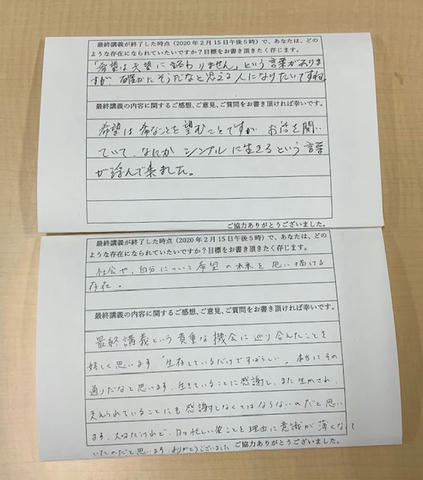 最終講義が終了した時点（2020年2月15日午後5時）で、あなたは、どの
ような存在になられていたいですか？目標をお書き頂きたく存じます。
「希望は失望に終わりません。」という言葉がありま
すが 確かにそうだなと思える人になりたいですね。
最終講義の内容に関するご感想、ご意見、ご質問をお書き頂ければ幸いです。
希望は希なことを望むことですが お話を聞い
ていて、なにか シンプルに生きるという言葉
が浮んで来ました。
ご協力ありがとうございました。
最終講義が終了した時点（2020年2月15日午後5時）で、あなたは、どの
ような存在になられていたいですか？目標をお書き頂きたく存じます。
社会や、自分について希望の未来を思い描ける
存在。
最終講義の内容に関するご感想、ご意見、ご質問をお書き頂ければ幸いです。
最終講義という貴重な機会に巡り合えたことを
嬉しく思います。「生存しているだけですばらしい」。本当にその
通りだなと思います。生きていることに感謝し、また生かされ、
支えられていることにも感謝しなくてはならないのだと思い
ます。大切だけれど、日々忙しいことを理由に意識が薄くなっ
ていたのだと思います。ありがとうございました
ご協力ありがとうございました。